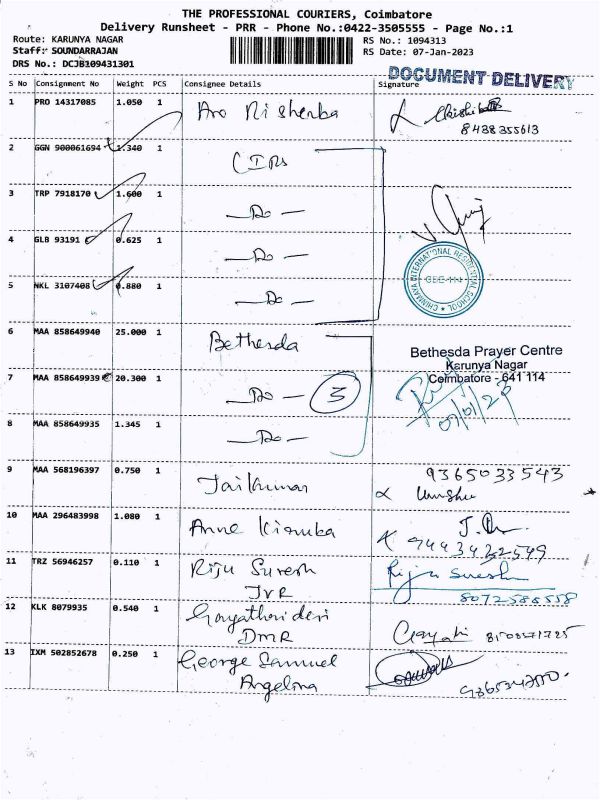 THE PROFESSIONAL COURIERS, Coimbatore
Delivery Runsheet - PRR - Phone No.:0422-3505555 - Page No.:1
Route: KARUNYA NAGAR RS No.: 1094313
Staff: SOUNDARRAJAN RS Date: 07-Jan-2023
DRS No.: DCJB109431301
DOCUMENT DELIVERY
S No Consignment No Weight PCS Consignee Details Signature
1 PRO 14317085 1.050 1
8438355613
2 GGN 900061694 1.340 1 CIRS
3 TRP 7918170 1.600 1 — Do —
4 GLB 93191 0.625 1 — Do —
CHINMAYA INTERNATIONAL RESIDENTIAL SCHOOL
5 NKL 3107408 0.880 1 — Do —
6 MAA 858649940 25.000 1 Bethesda
Bethesda Prayer Centre
Karunya Nagar
Coimbatore - 641 114
7 MAA 858649939 20.300 1 — Do — 3
07/01/23
8 MAA 858649935 1.345 1 — Do —
9 MAA 568196397 0.750 1 Jaikumar 9365033543
10 MAA 296483998 1.080 1 Anne
11 TRZ 56946257 0.110 1 Riju Suresh Riju Suresh
JVR 8072586558
12 KLK 8079935 0.540 1 Gayathri devi Gayatri
DMR
13 IXM 502852678 0.250 1 George Samuel
Angelina